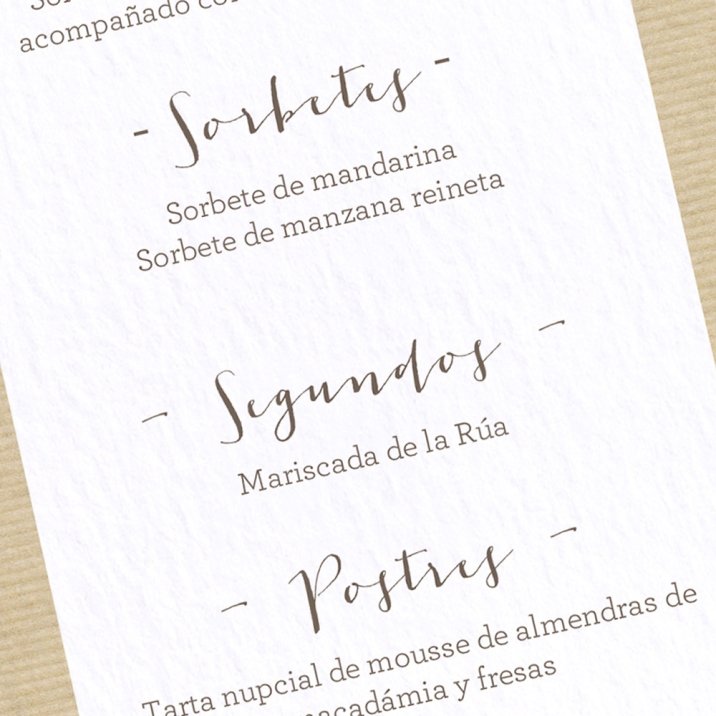 acompañado
- Sorbetes -
Sorbete de mandarina
Sorbete de manzana reineta
- Segundos -
Mariscada de la Rúa
- Postres -
Tarta nupcial de mousse de almendras de
y fresas